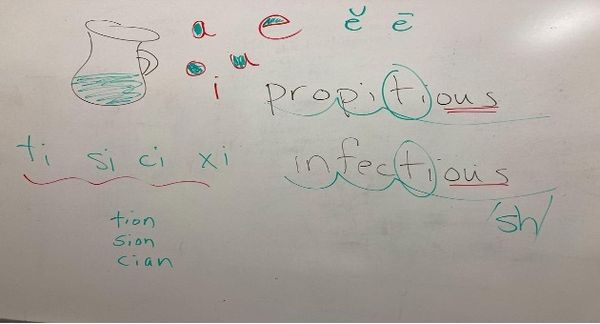 a e ĕ ē
o u
i
propitious
ti si ci xi
infectious
/sh/
tion
sion
cian